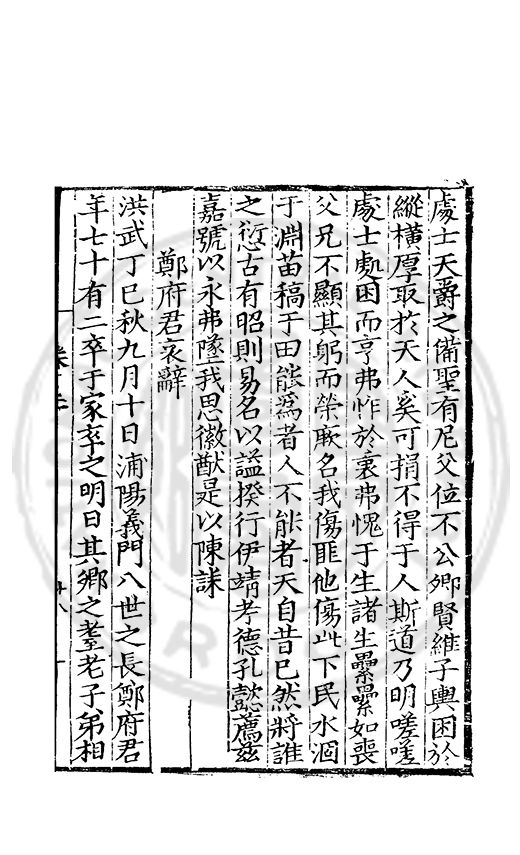 處士天爵之備聖有尼父位不公卿賢維子輿困於
縱橫厚取於天人奚可捐不得于人斯道乃明嗟嗟
處士處困而亨弗怍於衷弗愧于生諸生纍纍如喪
父兄不顯其躬而榮厥名我傷匪他傷此下民水涸
于淵苗稿于田能為者人不能者天自昔已然將誰
之愆古有昭則易名以謚揆行伊靖考德孔懿薦茲
嘉號以永弗墜我思徽猷是以陳誄
鄭府君哀辭
洪武丁巳秋九月十日浦陽義門八世之長鄭府君
年七十有二卒于家卒之明日其鄉之耋老子弟相